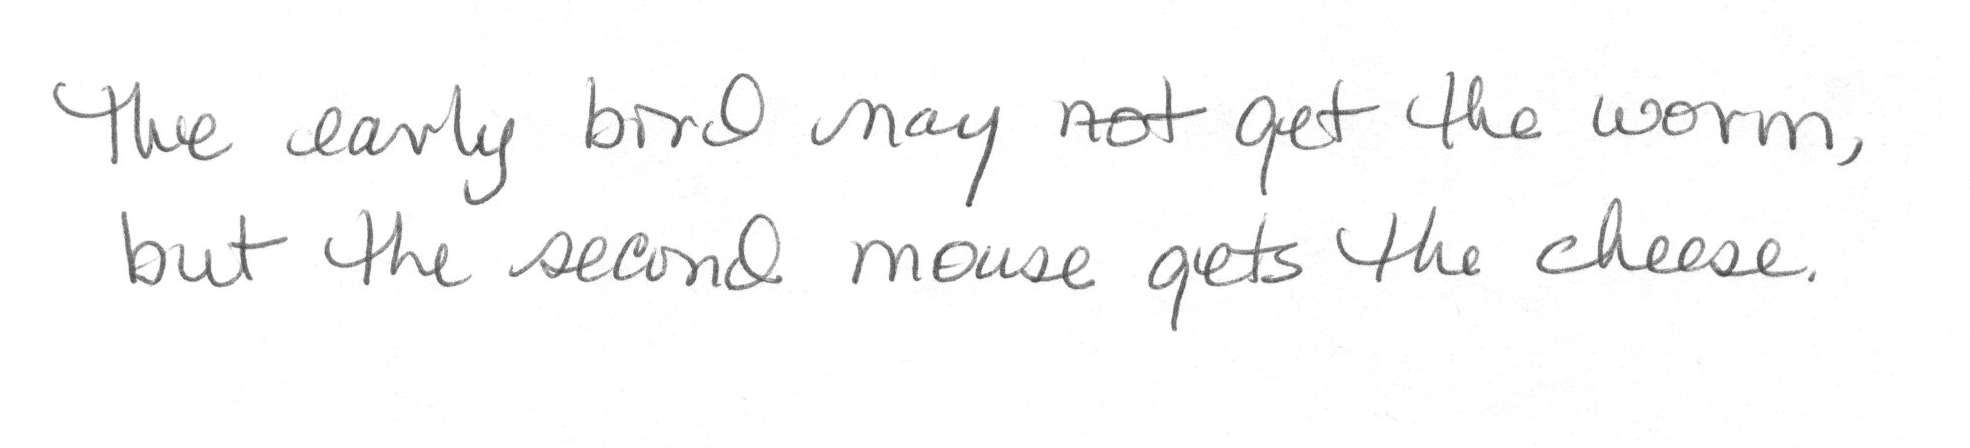 The early bird may not get the worm,
but the second mouse gets the cheese.